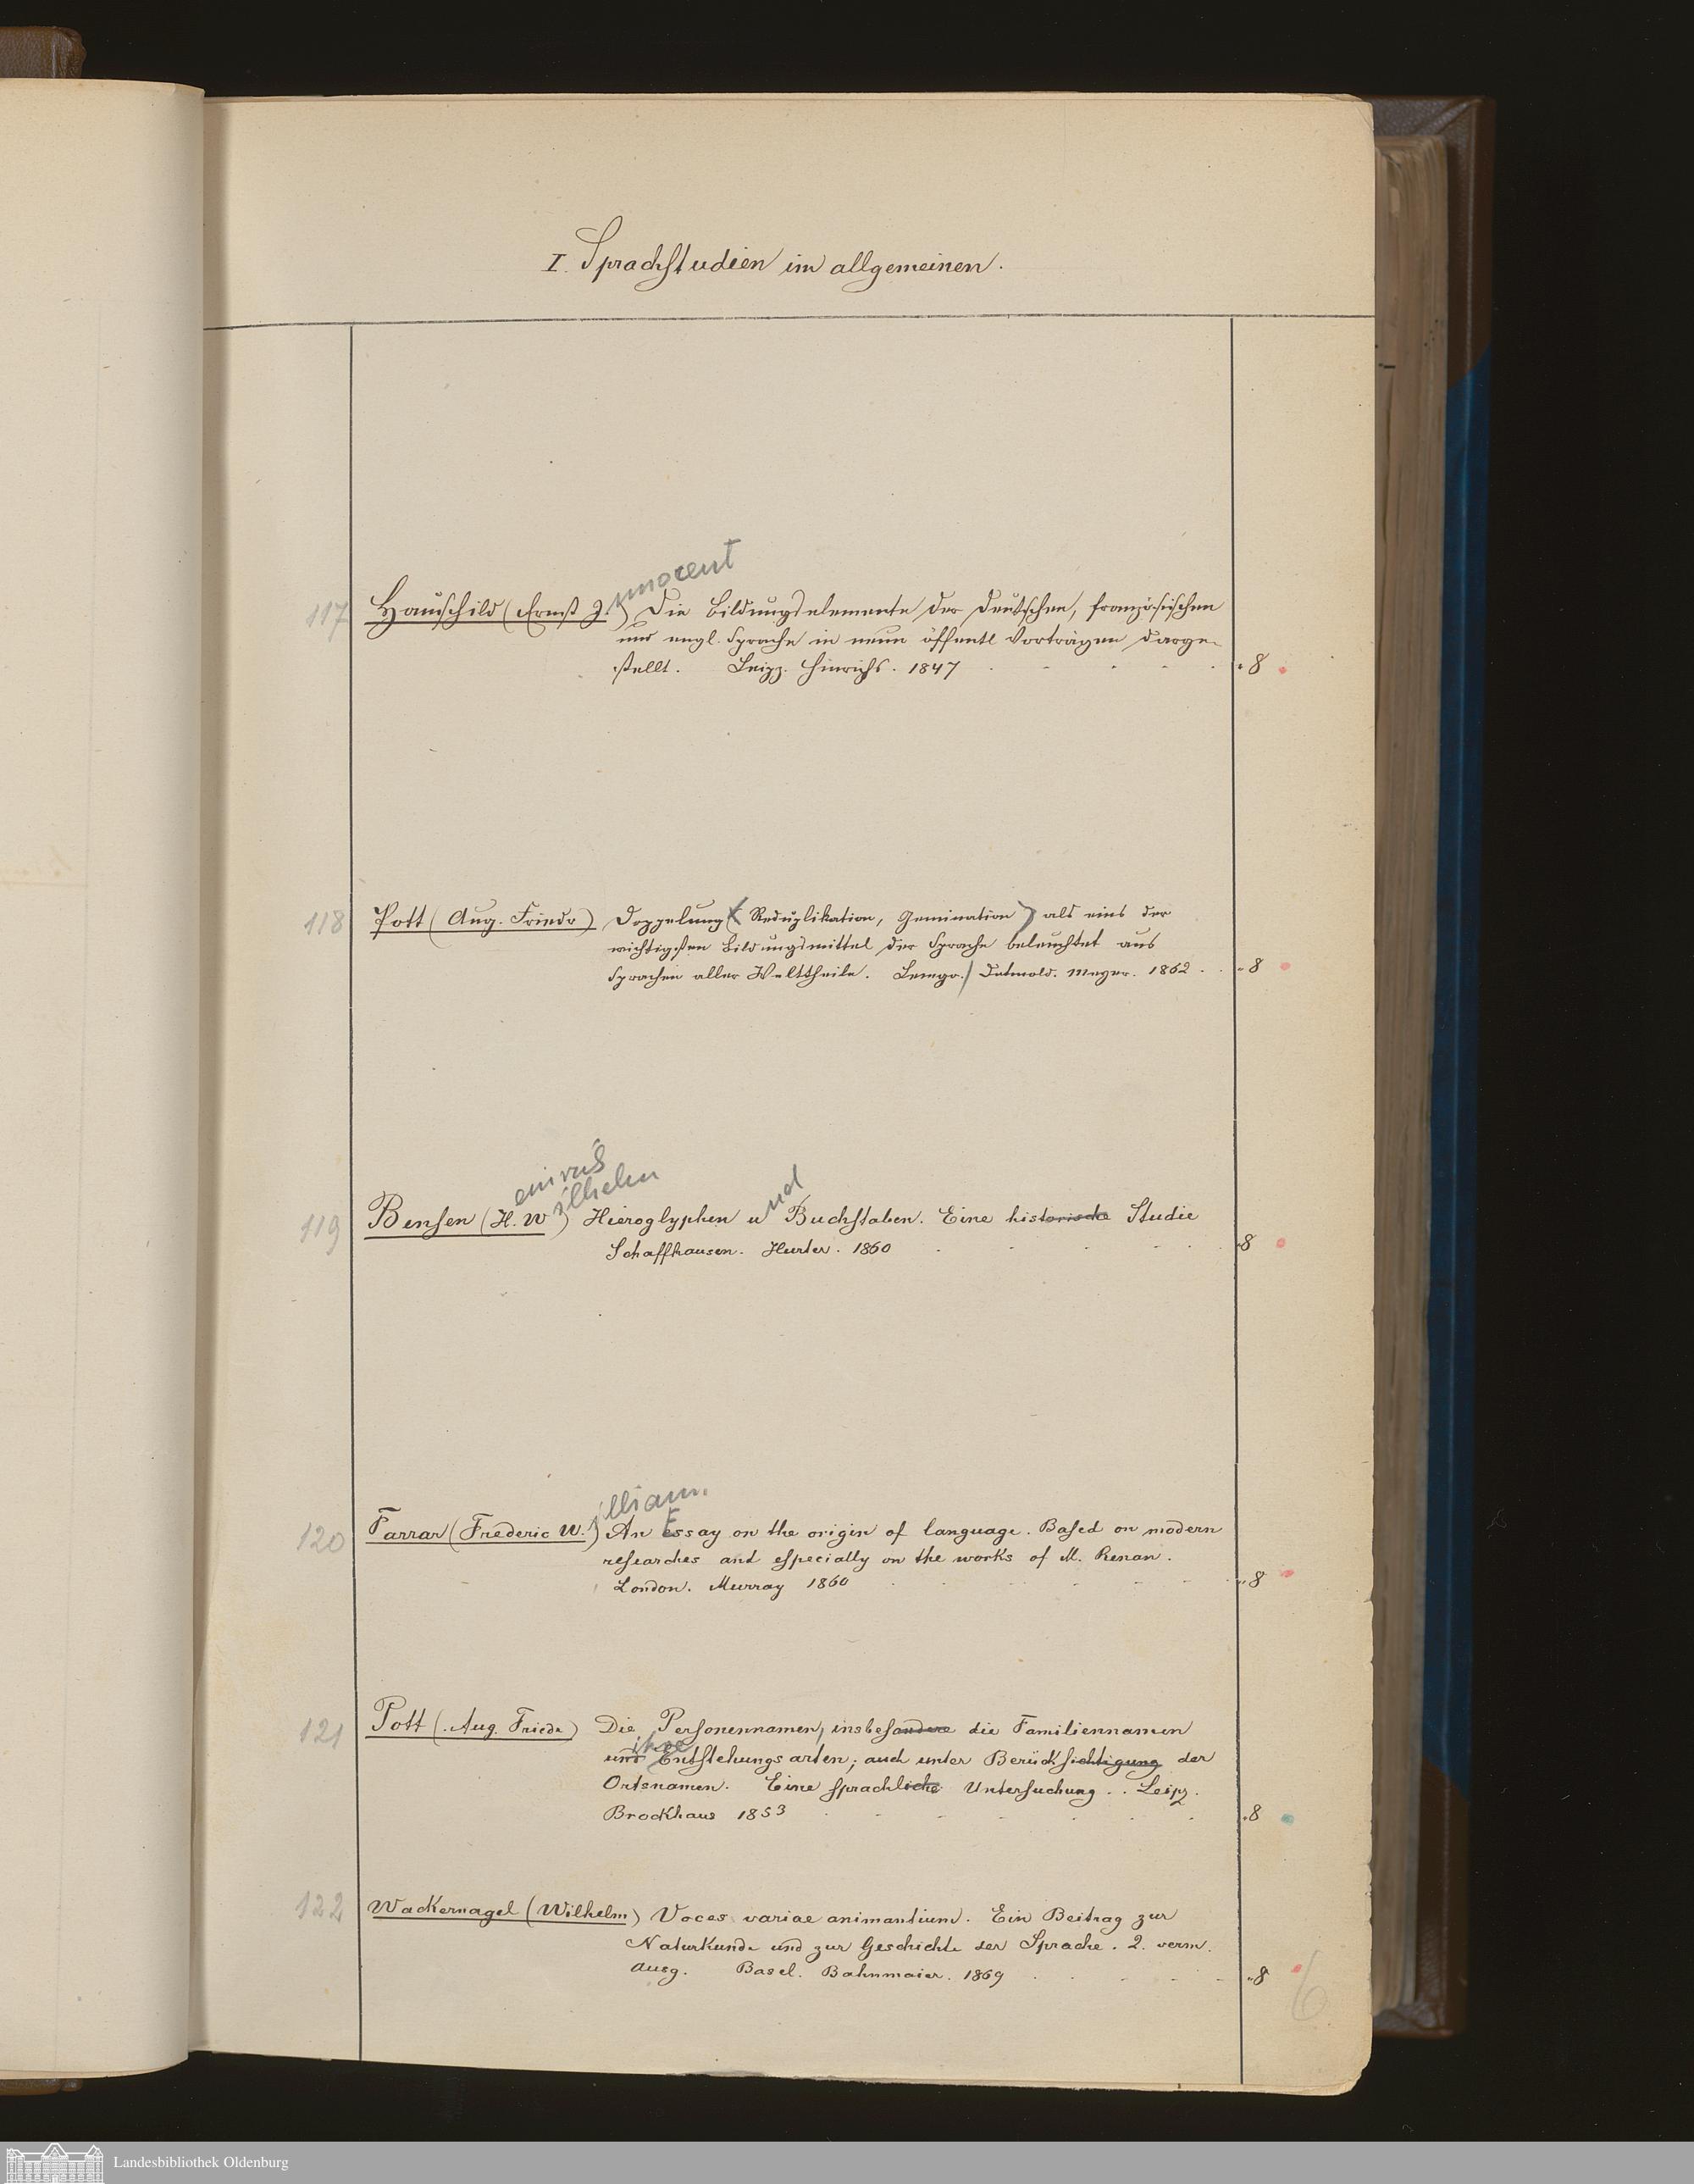 I. Sprachstudien im allgemeinen.
nnocent
117 Hauschild (Ernst J.) Die Bildungselemente der deutschen, französischen
und engl. Sprache in neun öffentl Vorträgen darge-
stellt. Leipz. Hinrichs. 1847 8
118 Pott (Aug. Friedr) Doppelung (Reduplikation, Gemination) als eins der
wichtigsten Bildungsmittel der Sprache beleuchtet aus
Sprachen aller Welttheile. Lemgo./ Detmold. Meyer. 1862 8
einrich
ilhelm nd
119 Bensen (H. W) Hieroglyphen u Buchstaben. Eine historische Studie
Schaffhausen. Hurter. 1860 8
illiam.
120 Farrar (Frederic W.) An Essay on the origin of language. Based on modern
researches and especially on the works of M. Renan.
London. Murray 1860 8
121 Pott (Aug. Friedr) Die Personennamen, insbesondere die Familiennamen
ihre
und Entstehungsarten; auch unter Berücksichtigung der
Ortsnamen. Eine sprachliche Untersuchung. Leipz.
Brockhaus 1853 8
122 Wackernagel (Wilhelm) Voces variae animantium. Ein Beitrag zur
Naturkunde und zur Geschichte der Sprache. 2. verm.
Ausg. Basel. Bahnmaier. 1869 8
6
Landesbibliothek Oldenburg